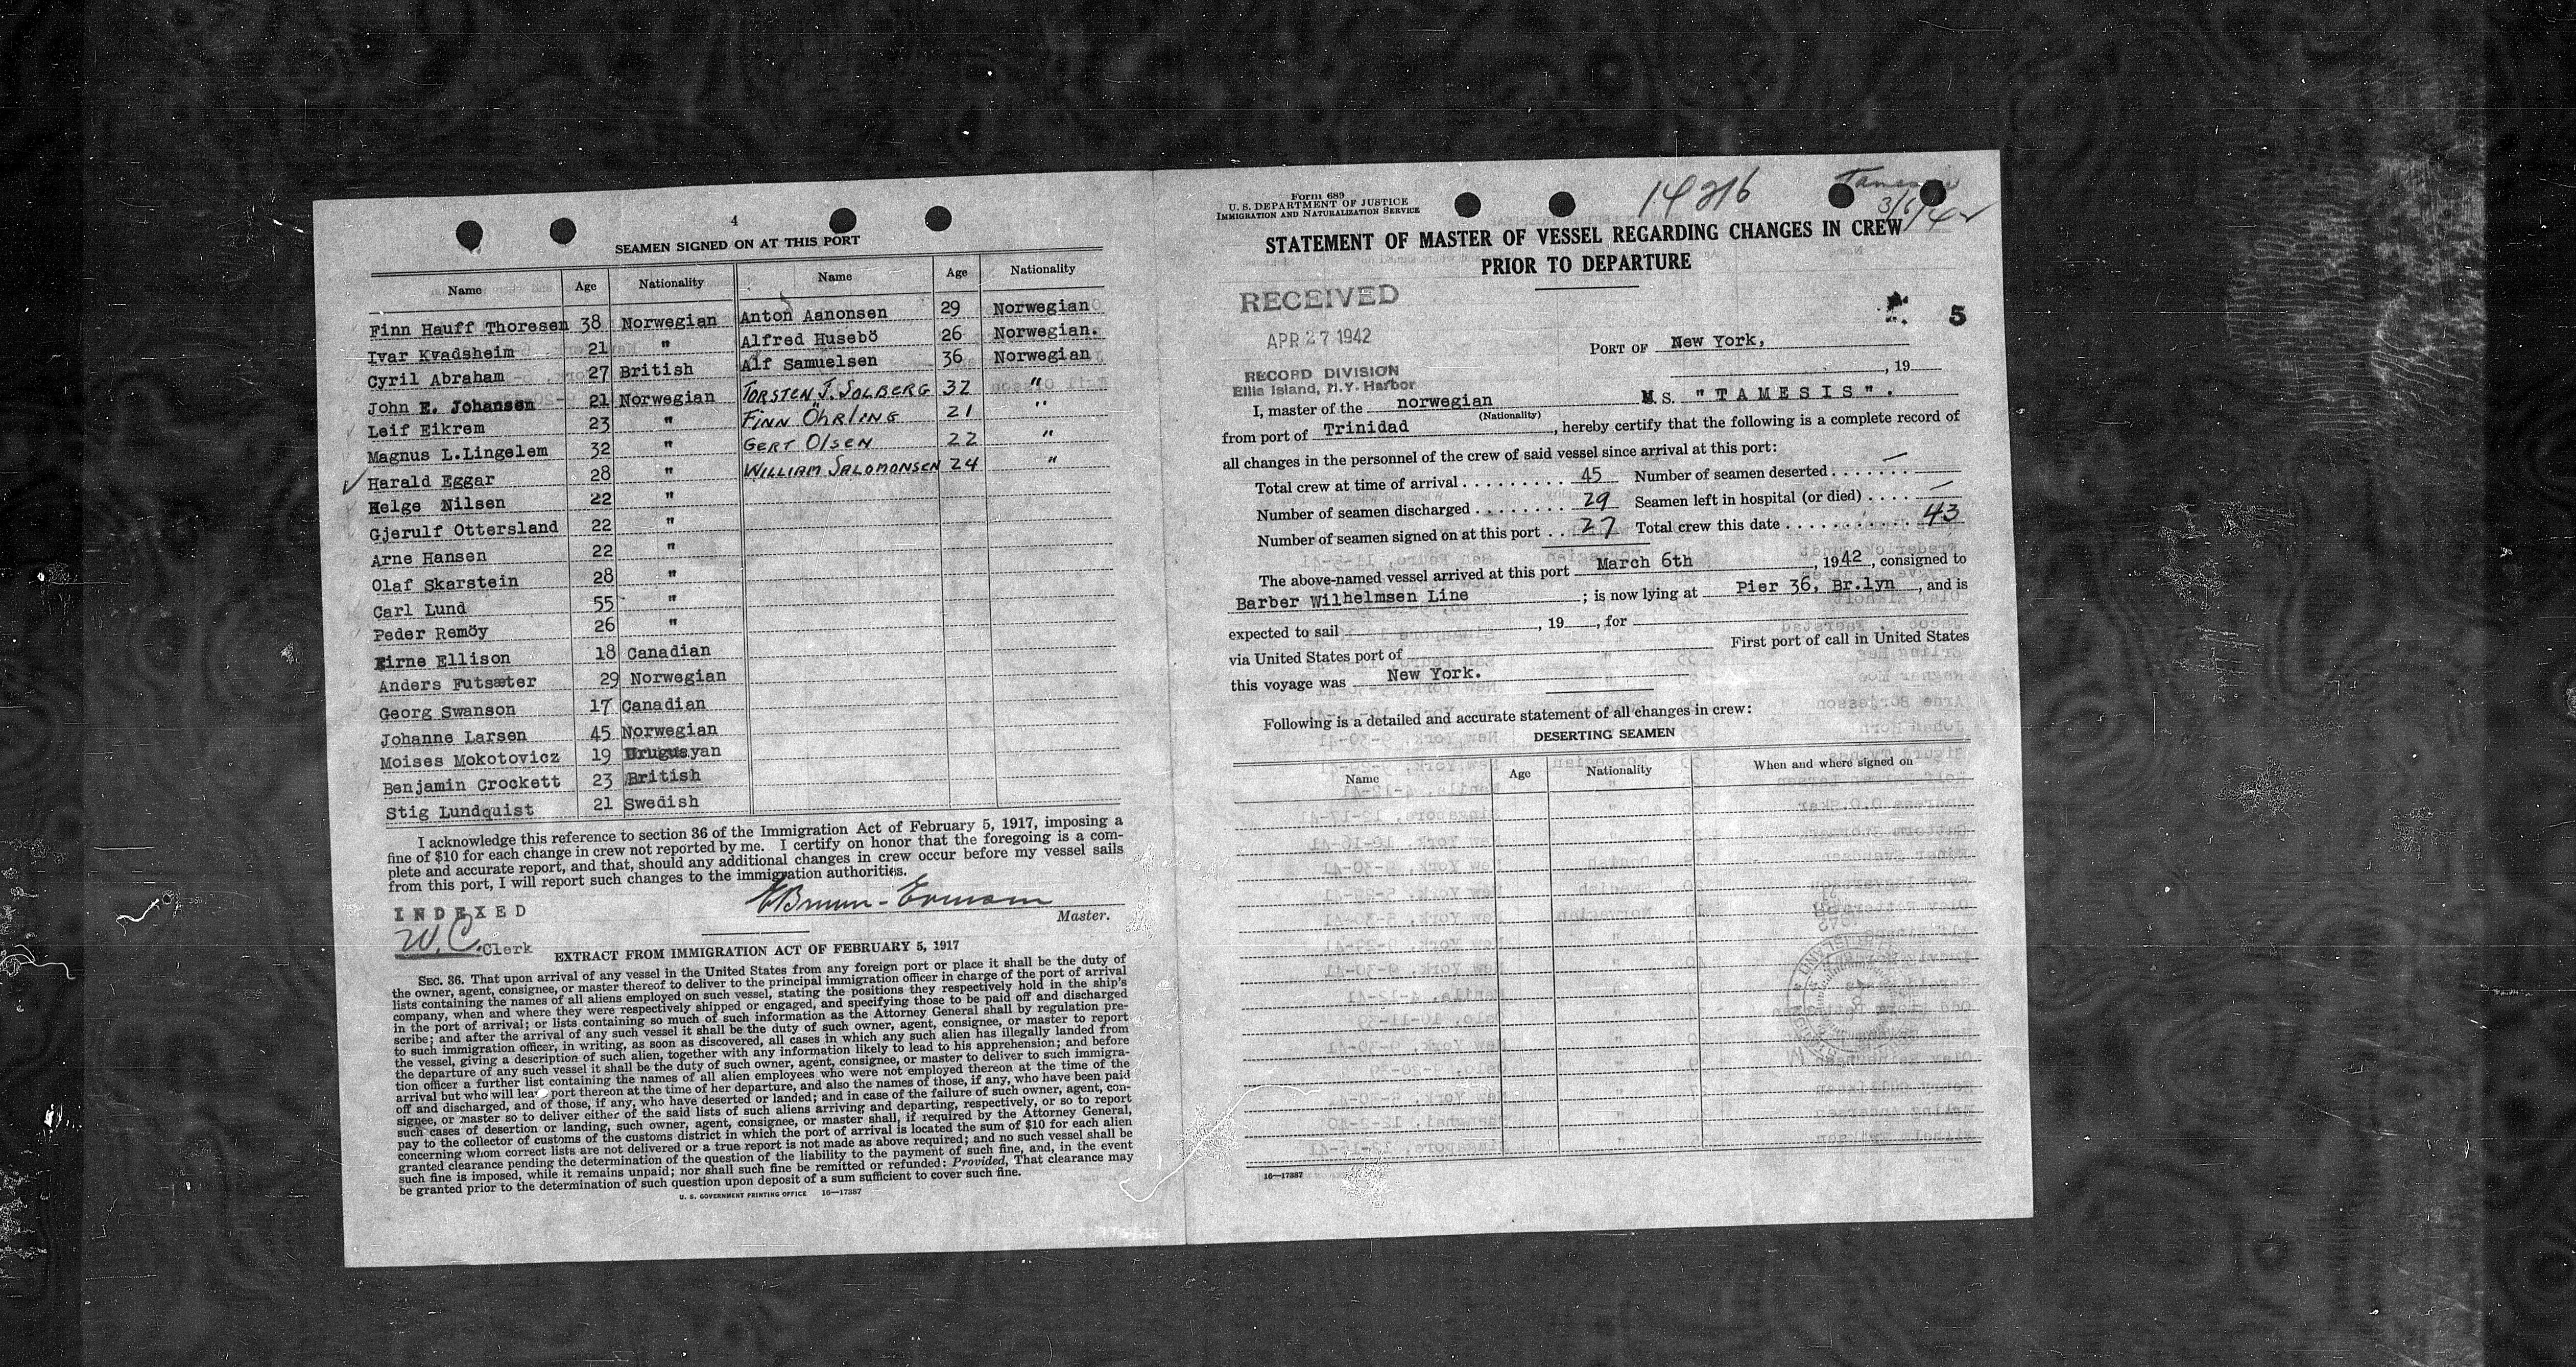 4
SEAMEN SIGNED ON AT THIS PORT
Name Age Nationality Name Age Nationality
Finn Hauff Thoresen 38 Norwegian Anton Aanonsen 29 Norwegian
Ivar Kvadsheim 21 " Alfred Husebö 26 Norwegian.
Cyril Abraham 27 British Alf Samuelsen 36 Norwegian
John E. Johansen 21 Norwegian TORSTEN J. SOLBERG 32 "
Leif Eikrem 23 " FINN ÖHRLING 21 "
Magnus L.Lingelem 32 " GERT OLSEN 22 "
Harald Eggar 28 " WILLIAM SALOMONSEN 24 "
Helge Nilsen 22 "
Gjerulf Ottersland 22 "
Arne Hansen 22 "
Olaf Skarstein 28 "
Carl Lund 55 "
Peder Remöy 26 "
Eirne Ellison 18 Canadian
Anders Futsæter 29 Norwegian
Georg Swanson 17 Canadian
Johanne Larsen 45 Norwegian
Moises Mokotovicz 19 Uruguayan
Benjamin Crockett 23 British
Stig Lundquist 21 Swedish
I acknowledge this reference to section 36 of the Immigration Act of February 5, 1917, imposing a
fine of $10 for each change in crew not reported by me. I certify on honor that the foregoing is a com-
plete and accurate report, and that, should any additional changes in crew occur before my vessel sails
from this port, I will report such changes to the immigration authorities.
Master.
INDEXED
W.C. Clerk
EXTRACT FROM IMMIGRATION ACT OF FEBRUARY 5, 1917
SEC. 36. That upon arrival of any vessel in the United States from any foreign port or place it shall be the duty of
the owner, agent, consignee, or master thereof to deliver to the principal immigration officer in charge of the port of arrival
lists containing the names of all aliens employed on such vessel, stating the positions they respectively hold in the ship's
company, when and where they were respectively shipped or engaged, and specifying those to be paid off and discharged
in the port of arrival; or lists containing so much of such information as the Attorney General shall by regulation pre-
scribe; and after the arrival of any such vessel it shall be the duty of such owner, agent, consignee, or master to report
to such immigration officer, in writing, as soon as discovered, all cases in which any such alien has illegally landed from
the vessel, giving a description of such alien, together with any information likely to lead to his apprehension; and before
the departure of any such vessel it shall be the duty of such owner, agent, consignee, or master to deliver to such immigra-
tion officer a further list containing the names of all alien employees who were not employed thereon at the time of the
arrival but who will leave port thereon at the time of her departure, and also the names of those, if any, who have been paid
off and discharged, and of those, if any, who have deserted or landed; and in case of the failure of such owner, agent, con-
signee, or master so to deliver either of the said lists of such aliens arriving and departing, respectively, or so to report
such cases of desertion or landing, such owner, agent, consignee, or master shall, if required by the Attorney General,
pay to the collector of customs of the customs district in which the port of arrival is located the sum of $10 for each alien
concerning whom correct lists are not delivered or a true report is not made as above required; and no such vessel shall be
granted clearance pending the determination of the question of the liability to the payment of such fine, and, in the event
such fine is imposed, while it remains unpaid; nor shall such fine be remitted or refunded: Provided, That clearance may
be granted prior to the determination of such question upon deposit of a sum sufficient to cover such fine.
U. S. GOVERNMENT PRINTING OFFICE 16—17387
Form 689
U. S. DEPARTMENT OF JUSTICE
IMMIGRATION AND NATURALIZATION SERVICE
14216
Tamesis
3/6/42
STATEMENT OF MASTER OF VESSEL REGARDING CHANGES IN CREW
PRIOR TO DEPARTURE
RECEIVED
APR 27 1942
RECORD DIVISION
Ellis Island, N.Y. Harbor
5
PORT OF New York,
, 19
I, master of the norwegian M.S. "TAMESIS".
(Nationality)
from port of Trinidad, hereby certify that the following is a complete record of
all changes in the personnel of the crew of said vessel since arrival at this port:
Total crew at time of arrival 45 Number of seamen deserted —
Number of seamen discharged 29 Seamen left in hospital (or died) —
Number of seamen signed on at this port 27 Total crew this date 43
The above-named vessel arrived at this port March 6th, 1942, consigned to
Barber Wilhelmsen Line; is now lying at Pier 36, Br.lyn, and is
expected to sail , 19 , for
via United States port of First port of call in United States
this voyage was New York.
Following is a detailed and accurate statement of all changes in crew:
DESERTING SEAMEN
Name Age Nationality When and where signed on
16—17387